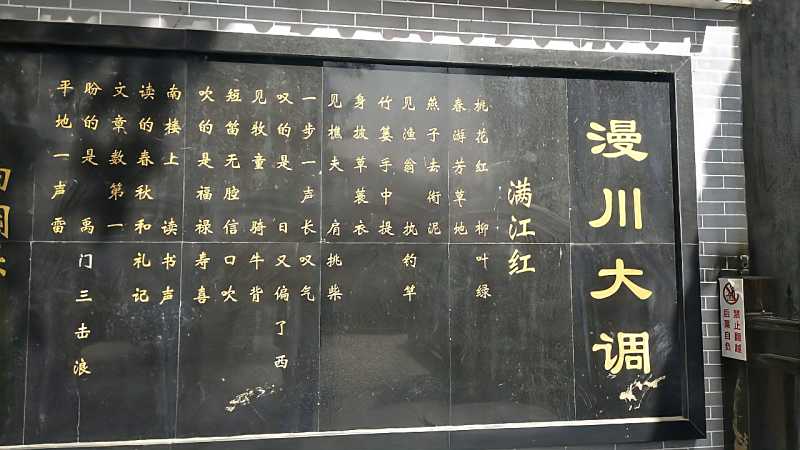 漫川大调
满江红
桃花红 柳叶绿
春游芳草地
燕子去衔泥
见渔翁 执钓竿
竹篓手中提
身披草蓑衣
见樵夫 肩挑柴
一步一声长叹气
叹的是 日又偏了西
见牧童 骑牛背
短笛无腔信口吹
吹的是福禄寿喜
南楼上 读书声
读的春秋和礼记
文章数第一
盼的是 禹门三击浪
平地一声雷
禁止翻越
后果自负